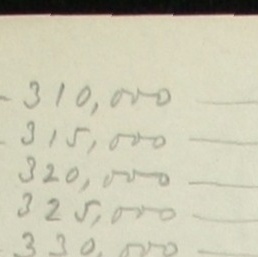 310,000
315,000
320,000
325,000
330,000